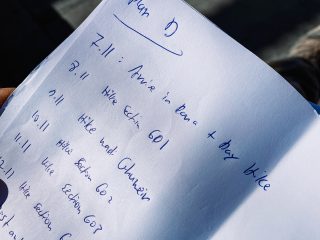 Plan D
7.11 : Arrive in Dana + Day Hike
8.11 Hike Section 601
9.11 Hike and
10.11 Hike Section 602
11.11 Hike Section 603
12.11 Hike Section